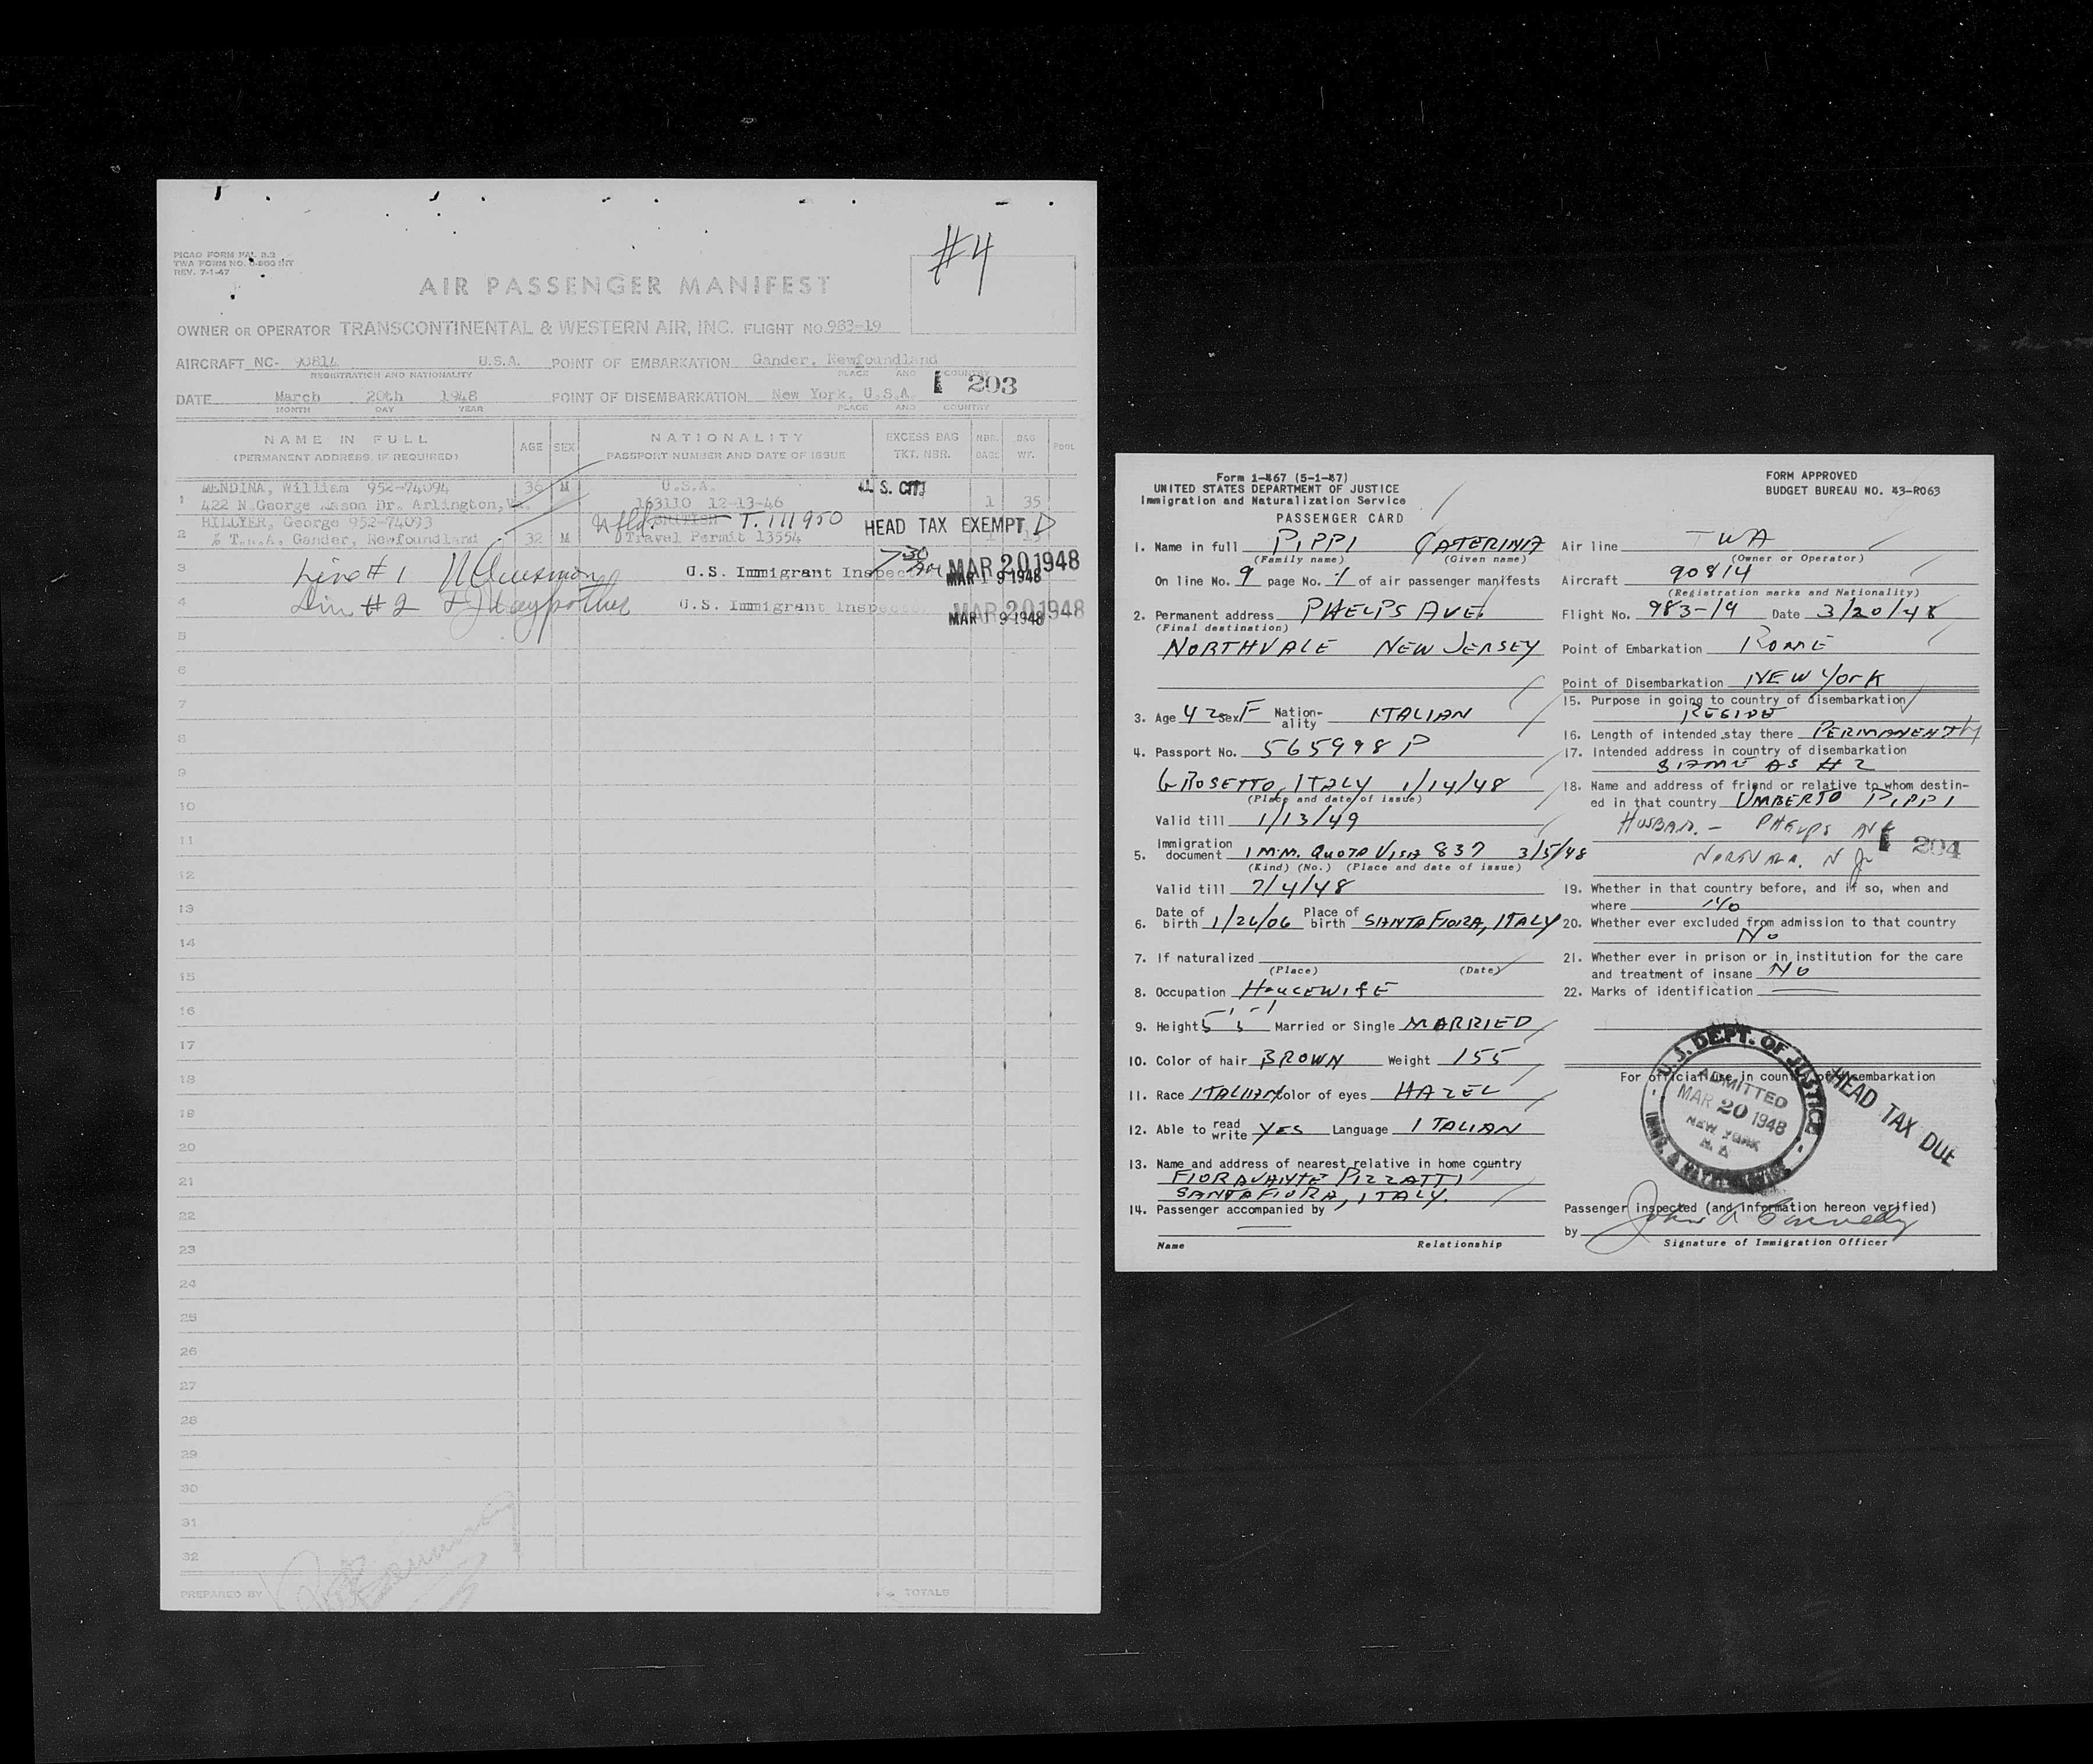 #4
PICAO FORM FAL 2.2
TWA FORM NO. INT
REV. 7-1-47
AIR PASSENGER MANIFEST
OWNER OR OPERATOR TRANSCONTINENTAL & WESTERN AIR, INC. FLIGHT NO. 983-19
AIRCRAFT NC- 90814 U.S.A. POINT OF EMBARKATION Gander, Newfoundland
REGISTRATION AND NATIONALITY PLACE AND COUNTRY
203
DATE March 20th 1948 POINT OF DISEMBARKATION New York, U.S.A.
MONTH DAY YEAR PLACE AND COUNTRY
NAME IN FULL AGE SEX NATIONALITY EXCESS BAG NBR. BAG POOL
(PERMANENT ADDRESS, IF REQUIRED) PASSPORT NUMBER AND DATE OF ISSUE TKT. NBR. BAGS WT.
1 MENDINA, William 952-74094 36 M U.S.A. U.S. CIT.
422 N George Mason Dr. Arlington, Va. 163110 12-13-46 1 35
2 HILLYER, George 952-74093 Nfld. BRITISH T. 111950 HEAD TAX EXEMPT D
% T.W.A. Gander, Newfoundland 32 M Travel Permit 13554 1 15
3 Line # 1 U.S. Immigrant Inspector MAR 20 1948
MAR 19 1948
4 Line # 2 U.S. Immigrant Inspector MAR 20 1948
MAR 19 1948
5
6
7
8
9
10
11
12
13
14
15
16
17
18
19
20
21
22
23
24
25
26
27
28
29
30
31
32
PREPARED BY TOTALS
Form I-467 (5-1-47)
UNITED STATES DEPARTMENT OF JUSTICE
Immigration and Naturalization Service
PASSENGER CARD
FORM APPROVED
BUDGET BUREAU NO. 43-R063
1. Name in full PIPPI CATERINA
(Family name) (Given name)
On line No. 9 page No. 1 of air passenger manifests
2. Permanent address PHELPS AVE.
(Final destination)
NORTHVALE NEW JERSEY
3. Age 42 Sex F Nationality ITALIAN
4. Passport No. 565998 P
GROSETTO, ITALY 1/14/48
(Place and date of issue)
Valid till 1/13/49
5. Immigration document IMM. QUOTA VISA 837 3/5/48
(Kind) (No.) (Place and date of issue)
Valid till 7/4/48
6. Date of birth 1/26/06 Place of birth SANTA FIORA, ITALY
7. If naturalized
(Place) (Date)
8. Occupation HOUCEWIFE
9. Height 5' 5" Married or Single MARRIED
10. Color of hair BROWN Weight 155
11. Race ITALIAN Color of eyes HAZEL
12. Able to read write YES Language ITALIAN
13. Name and address of nearest relative in home country
FIORAVANTE PIZZATTI
SANTA FIORA, ITALY.
14. Passenger accompanied by
Name Relationship
Air line TWA
(Owner or Operator)
Aircraft 90814
(Registration marks and Nationality)
Flight No. 983-19 Date 3/20/48
Point of Embarkation ROME
Point of Disembarkation NEW YORK
15. Purpose in going to country of disembarkation
RESIDE
16. Length of intended stay there PERMANENTLY
17. Intended address in country of disembarkation
SAME AS # 2
18. Name and address of friend or relative to whom destin-
ed in that country UMBERTO PIPPI
HUSBAN. - PHELPS AVE
204
19. Whether in that country before, and if so, when and
where NO
20. Whether ever excluded from admission to that country
NO
21. Whether ever in prison or in institution for the care
and treatment of insane NO
22. Marks of identification
For official use in country of disembarkation
U.S. DEPT. OF JUSTICE
ADMITTED
MAR 20 1948
NEW YORK
HEAD TAX DUE
Passenger inspected (and information hereon verified)
by
Signature of Immigration Officer